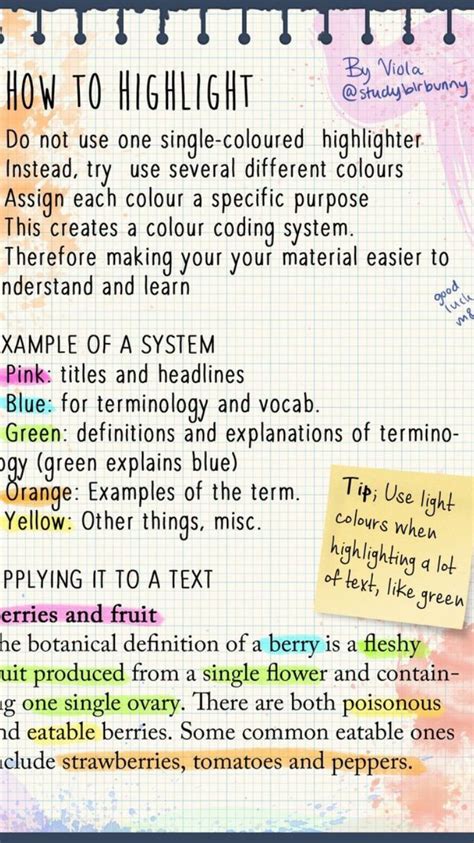 By Viola
@studyblrbunny
HOW TO HIGHLIGHT
Do not use one single-coloured highlighter
Instead, try use several different colours
Assign each colour a specific purpose
This creates a colour coding system.
Therefore making your your material easier to
nderstand and learn
good
luck
XAMPLE OF A SYSTEM
Pink: titles and headlines
Blue: for terminology and vocab.
Green: definitions and explanations of termino-
ogy (green explains blue)
Orange: Examples of the term.
Yellow: Other things, misc.
Tip; Use light
colours when
highlighting a lot
of text, like green
PPLYING IT TO A TEXT
erries and fruit
he botanical definition of a berry is a fleshy
uit produced from a single flower and contain-
ng one single ovary. There are both poisonous
nd eatable berries. Some common eatable ones
nclude strawberries, tomatoes and peppers.